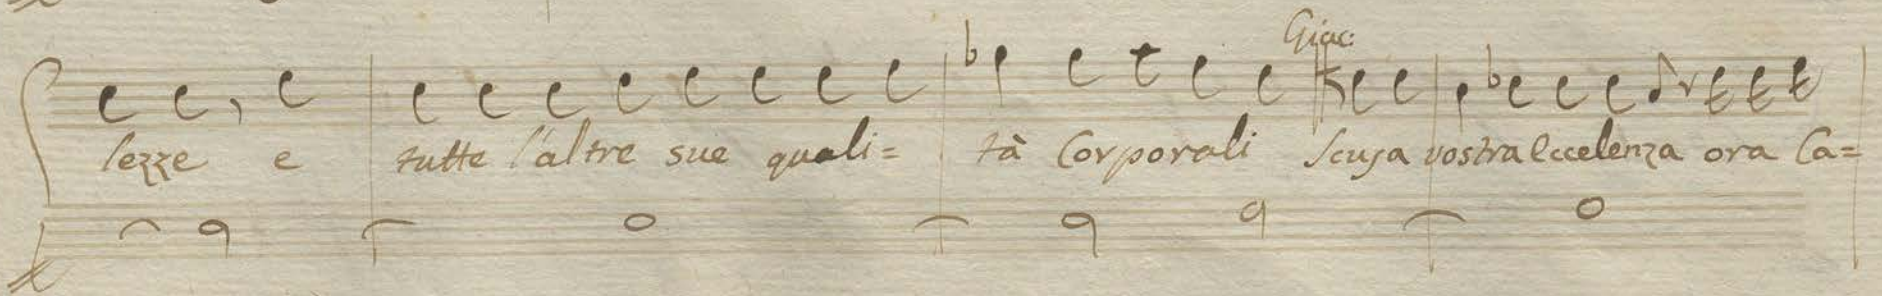 Giac:
lezze e tutte l'altre sue quali= tà Corporali scusa vostra Eccelenza ora Ca=